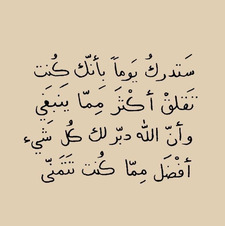 ستدركُ يَوماً بأنّك كُنت
تَقلقْ أكثَرَ مِمّا يَنبَغي
وأنّ الله دبّر لك كُل شَيء
أفْضَل مِمّا كُنت تَتَمَنّى